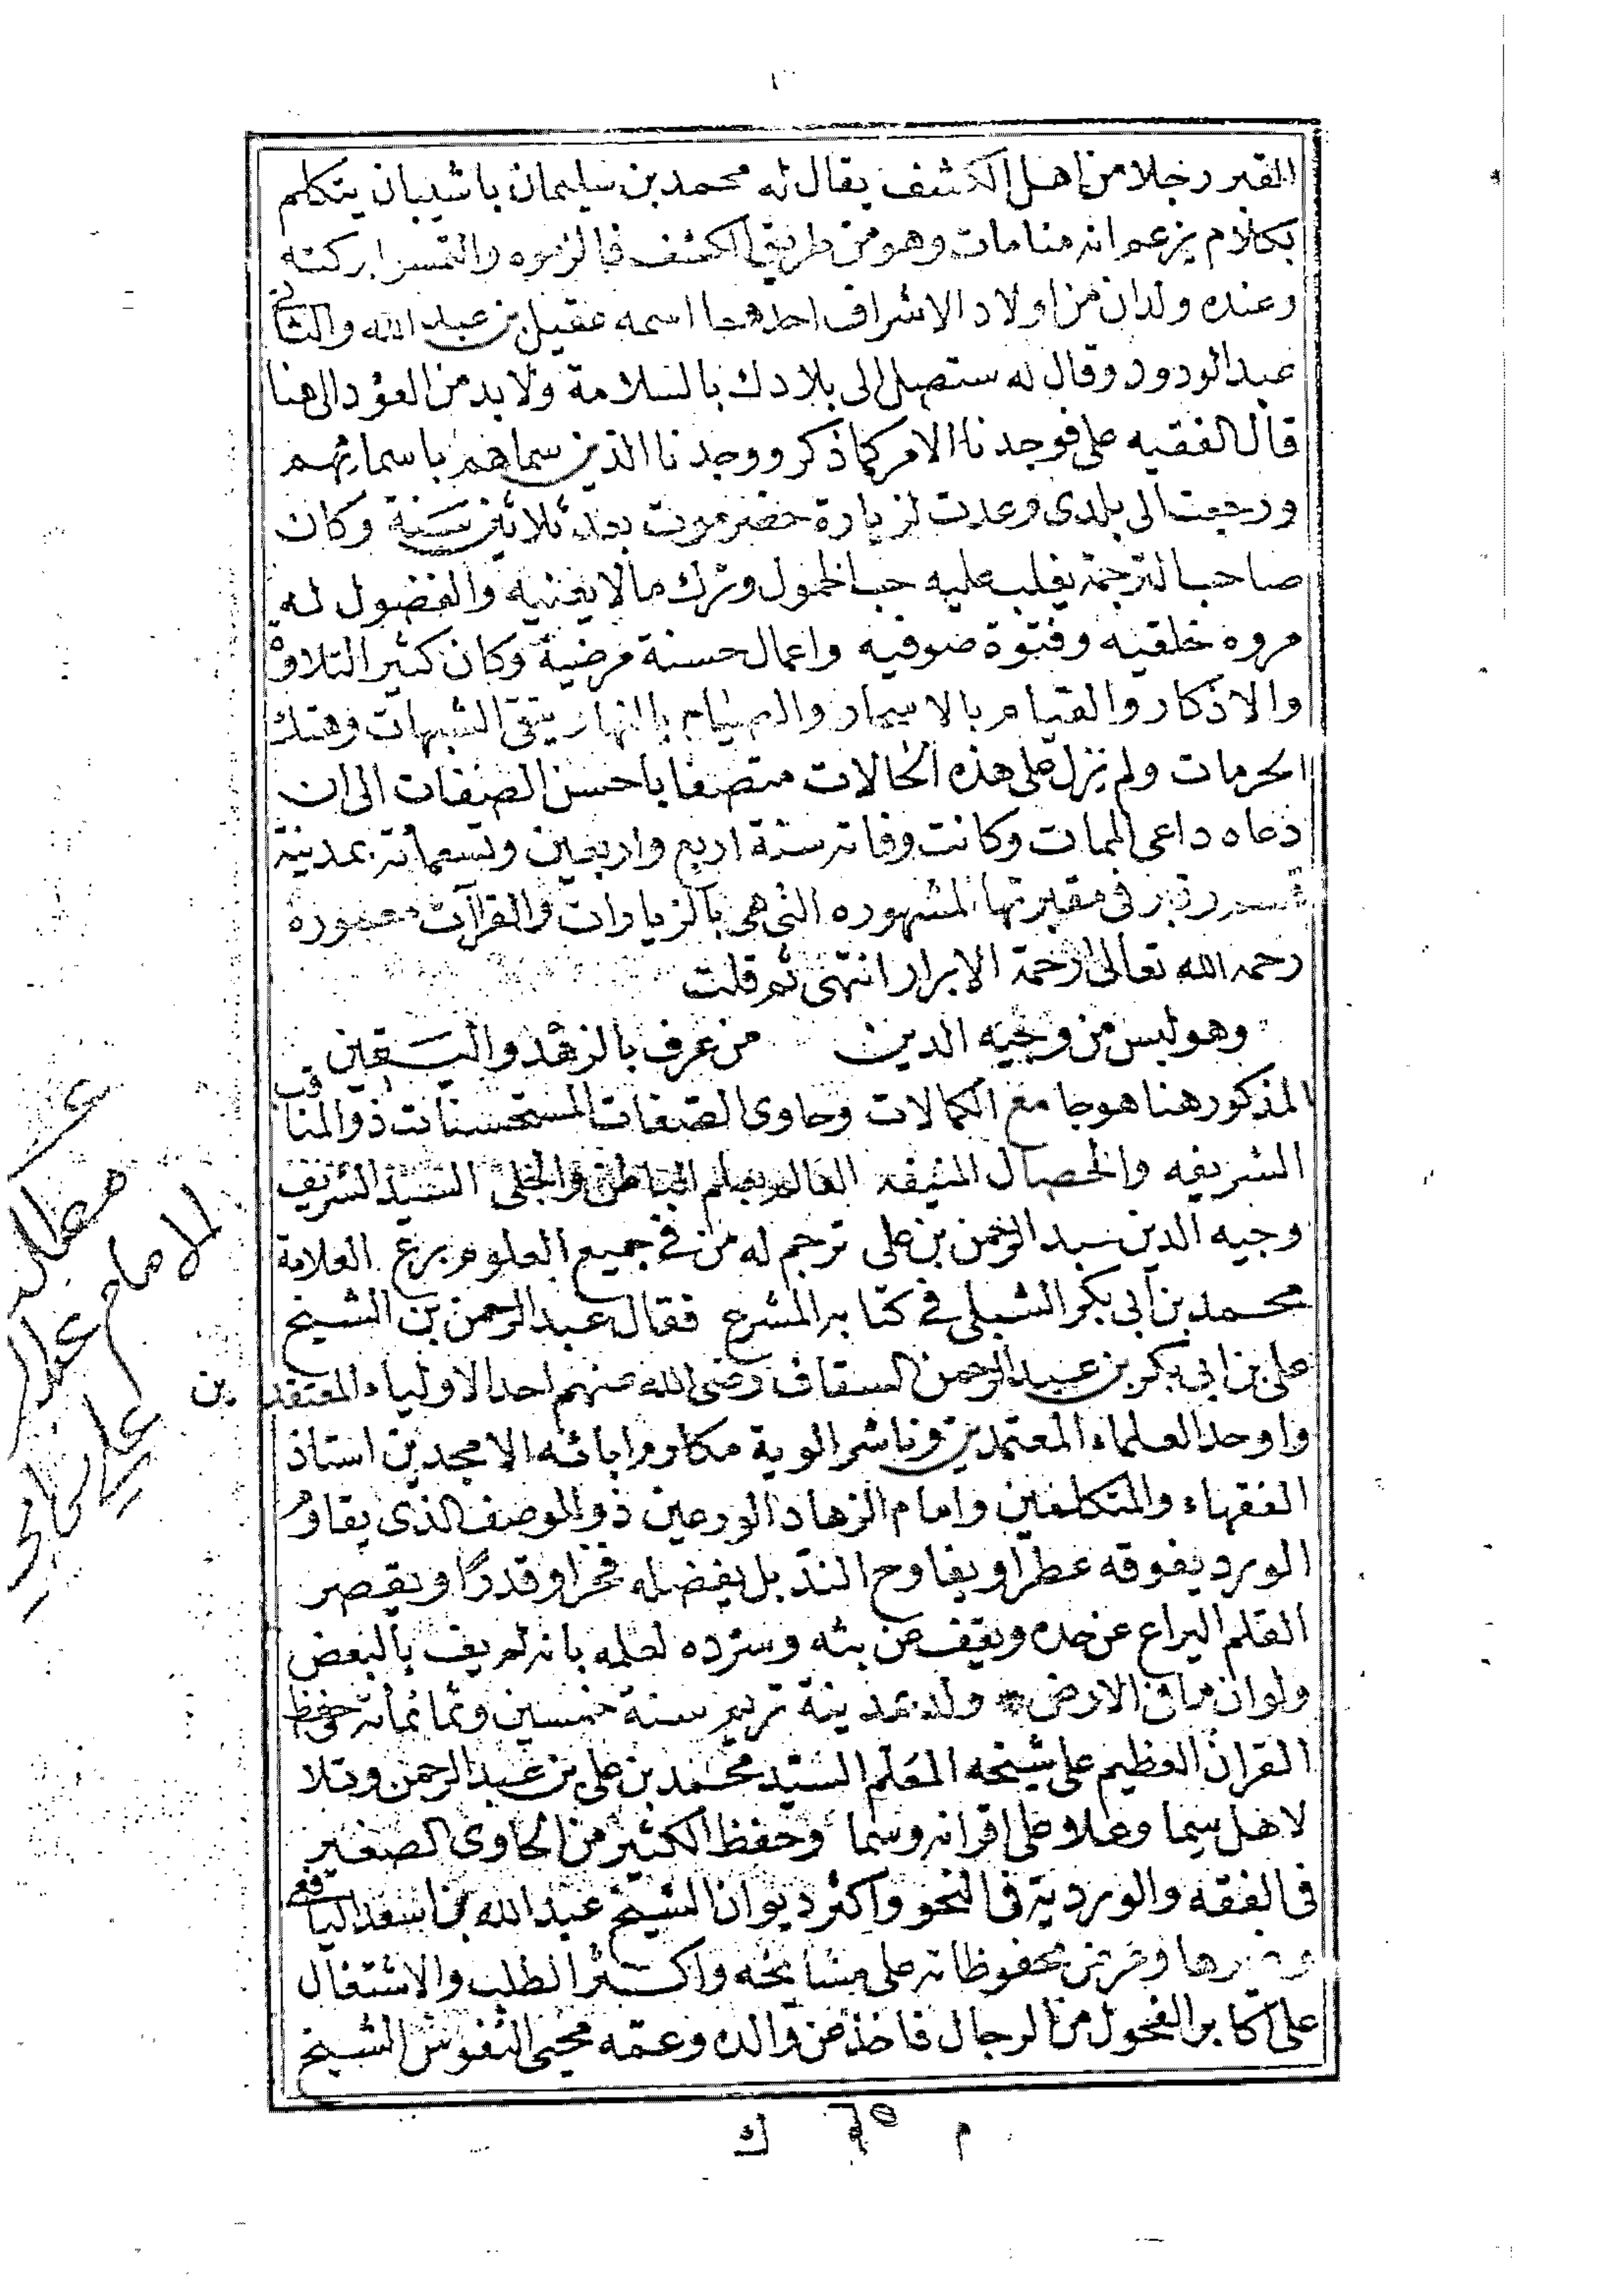 القبر رجلا من اهل الكشف يقال له محمد بن سليمان باشيبان يتكلم
بكلام يزعم انه منامات وهو من طريق الكشف فالزموه والتمسوا بركته
وعنده ولدان من اولاد الاشراف احدهما اسمه عقيل بن عبد الله والثاني
عبد الودود وقال له ستصل الى بلادك بالسلامة ولا بد من العود الى هنا
قال الفقيه على فوجدنا الامر كما ذكر ووجدنا الذين سماهم باسمائهم
ورجعت الى بلدى وعدت لزيارة حضرموت بعد ثلاثين سنة وكان
صاحب الترجمة يغلب عليه حب الخمول وترك مالا يعنيه والفضول له
مروه خلقيه وفتوة صوفيه واعمال حسنة مرضية وكان كثير التلاوة
والاذكار والقيام بالاسحار والصيام بالنهار يتقى الشبهات وهتك
الحرمات ولم يزل على هذه الحالات متصفا باحسن الصفات الى ان
دعاه داعى الممات وكانت وفاته سنة اربع واربعين وتسعمائة بمدينة
وقبر فى مقبرتها المشهوره التى هى بالزيارات والقرآت معموره
رحمه الله تعالى رحمة الابرار انتهى ثم قلت
وهو لبس من وجيه الدين من عرف بالزهد واليقين
المذكور هنا هو جامع الكمالات وحاوى الصفات المستحسنات ذو المناقب
الشريفه والخصال المنيفه العالم بعلم الباطن والجلى السيد الشريف
وجيه الدين عبد الرحمن بن على ترجم له من فى جميع العلوم برع العلامة
محمد بن ابى بكر الشبلى فى كتابه المشرع فقال عبد الرحمن بن الشيخ
على بن ابى بكر بن عبد الرحمن السقاف رضى الله عنهم احد الاولياء المعتقدين
واوحد العلماء المعتمدين وناشر الوية مكارم ابائه الامجدين استاذ
الفقهاء والمتكلمين وامام الزهاد الورعين ذو الوصف الذى يقاوم
الورد يفوقه عطرا ويفاوح الند بل يفضله فخرا وقدرًا ويقصر
القلم اليراع عن حده ويقف عن بثه وسرده لعلمه بانه لم يف بالبعض
ولو ان ما فى الارض * ولد بمدينة تريم سنة خمسين وثمانمائة حفظ
القران العظيم على شيخه المعلم السيد محمد بن على بن عبد الرحمن وتلا
لاهل سما وعلا على اقرانه وسما وحفظ الكثير من الحاوى الصغير
فى الفقه والوردية فى النحو واكثر ديوان الشيخ عبد الله بن اسعد اليافعى
وغيرها وعرض محفوظاته على مشايخه واكثر الطلب والاشتغال
على اكابر الفحول من الرجال فاخذ عن والده وعمه محيى النفوس الشيخ
مطلب
الامام عبد الر
على بن ابى
م ٦٥ ك